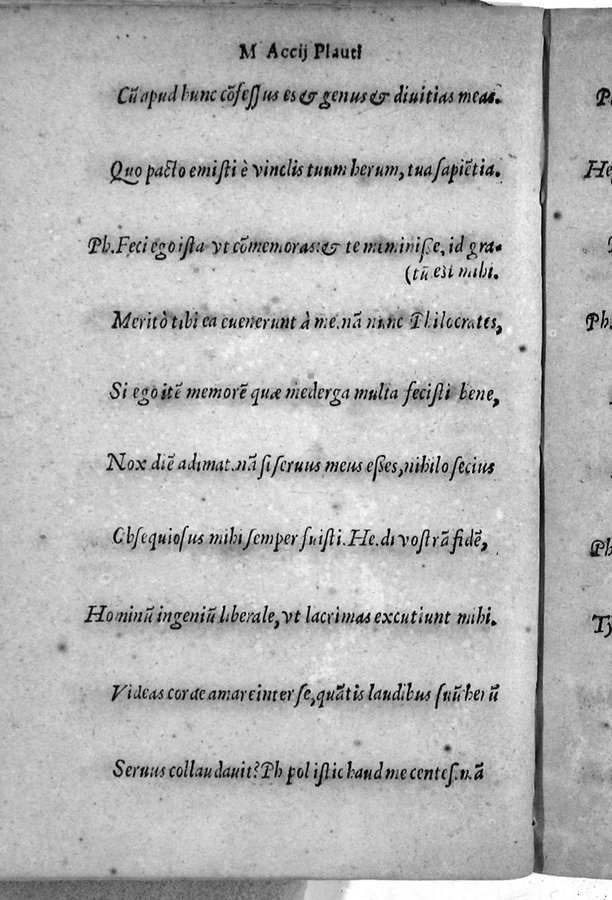 M Accij Plauti
Cũ apud hunc cõfessus es & genus & diuitias meas.
Quo pacto emisti è vinclis tuum herum, tua sapiẽtia.
Ph. Feci ego ista vt cõmemoras: & te meminisse, id gra-
(tũ est mihi.
Meritò tibi ea euenerunt à me. nã nunc Philocrates,
Si ego itẽ memorẽ quæ mederga multa fecisti bene,
Nox diẽ adimat. nã si seruus meus esses, nihilo secius
Obsequiosus mihi semper fuisti. He. di vostrã fidẽ,
Hominũ ingeniũ liberale, vt lacrimas excutiunt mihi.
Videas corde amare inter se, quãtis laudibus suũ herũ
Seruus collaudauit? Ph pol istic haud me centes. mã
Ph
He
Ph.
Ph
Ty